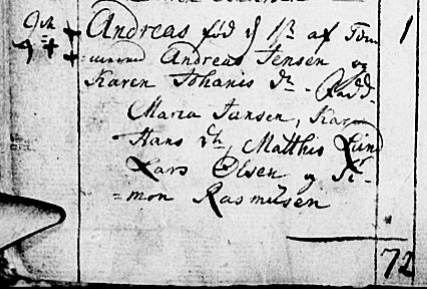 Andreas fød d 1st af Tøm 1
Andreas Jensen og
Karen Johanis dr - Fadd.
Maria Jansen, Karen
Hans dr, Matthis Lund
Lars Olsen og Si-
=mon Rasmusen
72